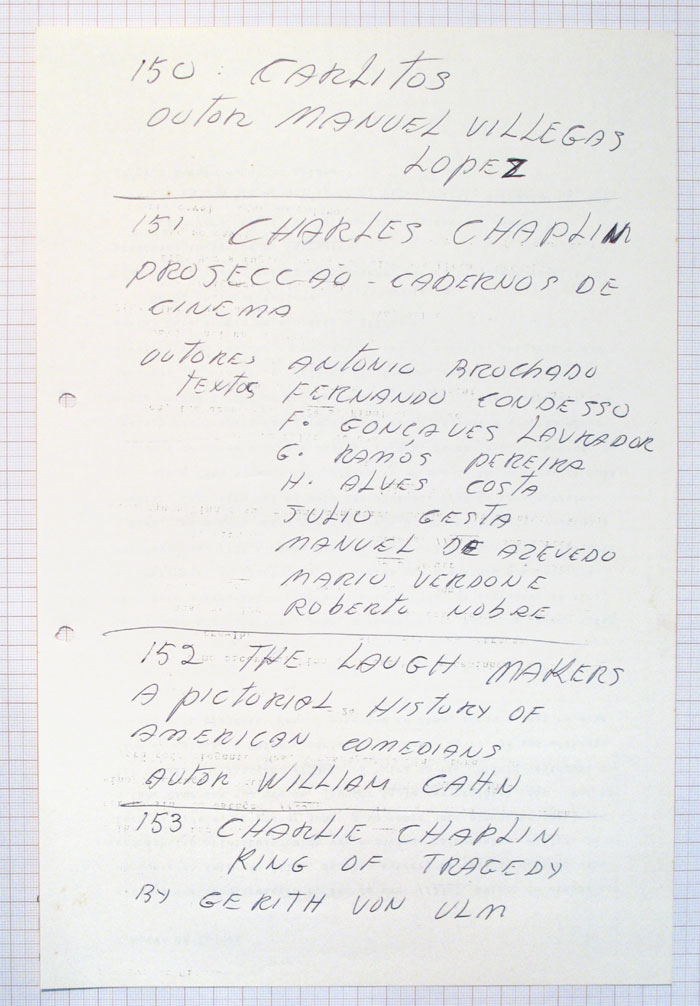 150. CARLITOS
autor MANUEL VILLEGAS
LOPEZ
151 CHARLES CHAPLIN
PROSECCAO - CADERNOS DE
CINEMA
autores ANTONIO BROCHADO
TEXTOS FERNANDO CONDESSO
F. GONÇALVES LAVRADOR
G. RAMOS PEREIRA
H. ALVES COSTA
JULIO GESTA
MANUEL DE AZEVEDO
MARIO VERDONE
ROBERTO NOBRE
152 THE LAUGH MAKERS
A PICTORIAL HISTORY OF
AMERICAN COMEDIANS
AUTOR WILLIAM CAHN
153 CHARLIE CHAPLIN
KING OF TRAGEDY
BY GERITH VON ULM